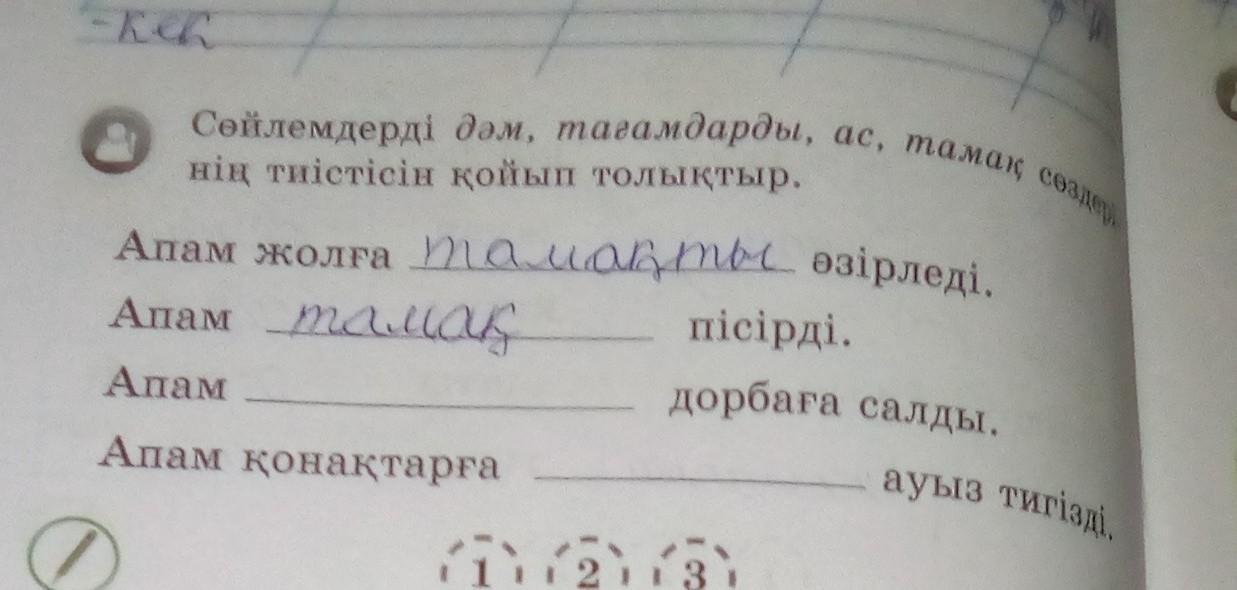 -кең
Сөйлемдерді дәм, тағамдарды, ас, тамақ сөздері
нің тиістісін қойып толықтыр.
Апам жолға тамақты әзірледі.
Апам тамақ пісірді.
Апам дорбаға салды.
Апам қонақтарға ауыз тигізді.
1 2 3